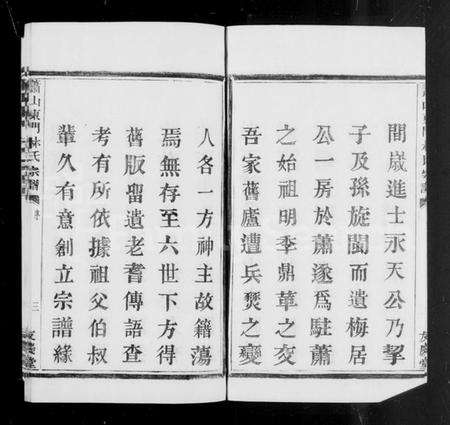 間歲進士永天公乃挈
子及孫旋閩而遺梅居
公一房於蕭遂爲駐蕭
之始祖明季鼎革之交
吾家舊廬遭兵燹之變
人各一方神主故籍蕩
焉無存至六世下方得
舊版畱遺老耆傳語查
考有所依據祖父伯叔
輩久有意創立宗譜緣
蕭山東門林氏宗譜
序
三
友慶堂